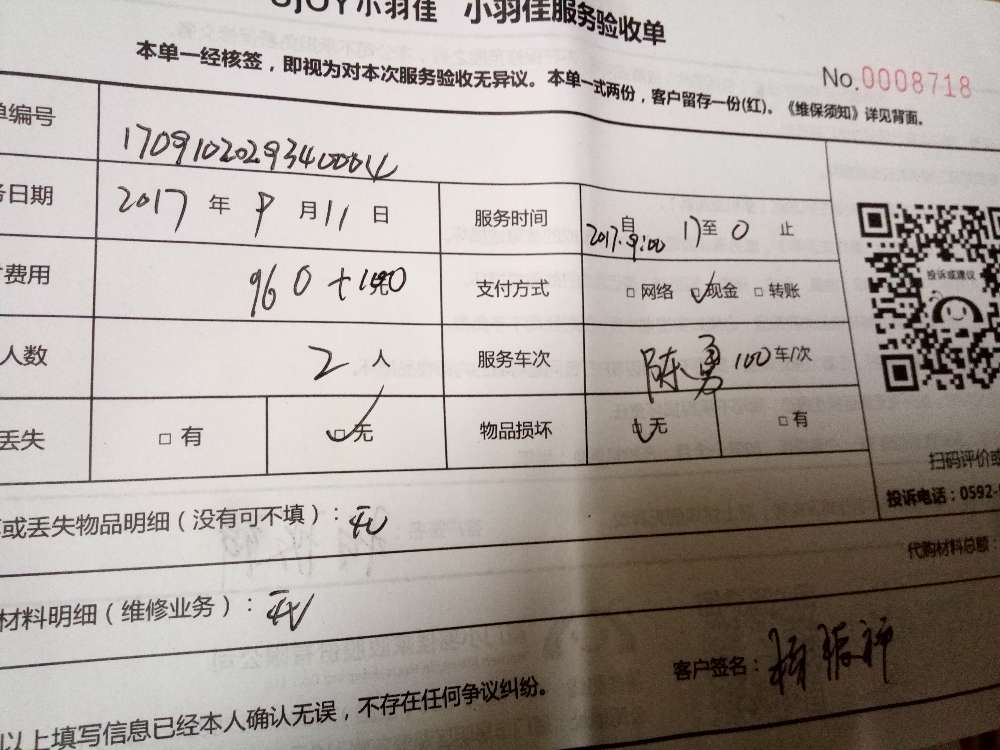 小羽佳 小羽佳服务验收单
本单一经核签，即视为对本次服务验收无异议。本单一式两份，客户留存一份(红)。《维保须知》详见背面。
No.0008718
单编号 1709102029340004
务日期 2017 年 9 月 11 日 服务时间 自 2017.9:00 17 至 0 止
费用 960+ 支付方式 □ 网络 □ 现金 □ 转账
人数 2 人 服务车次 陈勇 100 车/次
丢失 □ 有 □ 无 物品损坏 □ 无 □ 有
投诉或建议
扫码评价或
投诉电话：0592-
或丢失物品明细（没有可不填）：无
代购材料总额：
材料明细（维修业务）：无
客户签名：
以上填写信息已经本人确认无误，不存在任何争议纠纷。